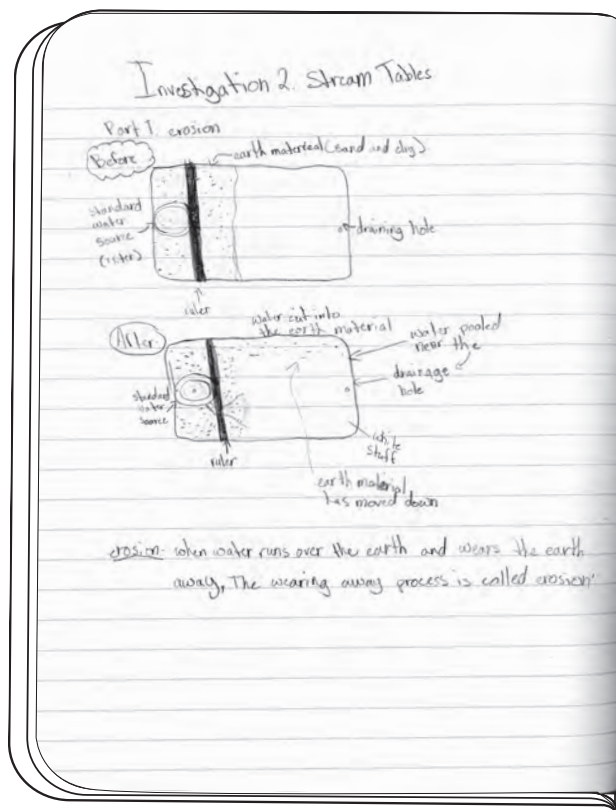 Investigation 2. Stream Tables
Part 1. erosion
Before
earth material (sand and clay)
standard
water
source
(1 liter)
draining hole
ruler
After
water cut into
the earth material
water pooled
near the
drainage
hole
standard
water
source
ruler
white
stuff
earth material
has moved down
erosion- when water runs over the earth and wears the earth
away. The wearing away process is called erosion.